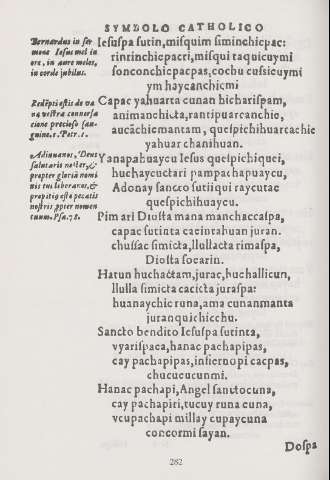 SYMBOLO CATHOLICO
Bernardus in ser
mone Iesus mel in
ore, in aure melos,
in corde jubilus.
Redẽpti estis de va
na vestra conversa
tione precioso san-
guine. 1. Petr. 1.
Adiuua nos, Deus
salutaris noster, &
propter gloriã nomi
nis tui libera nos, &
propitius esto peccatis
nostris ꝓpter nomen
tuum. Psa. 78.
Iesuſpa ſutin, miſquim ſiminchicpac:
rinrinchicpacri, miſqui taquicuymi
ſonconchicpacpas, cochu cuſsicuymi
ym haycanchicmi
Capac yahuarta cunan bichariſpam,
animanchicta, rantipuarcanchic,
aucãchicmantam, queſpichihuarcachic
yahuar chanihuan.
Yanapahuaycu Iesus queſpichiquei,
huchaycuctari pampachapuaycu,
Adonay ſancto ſutiiqui raycutac
queſpichihuaycu.
Pim ari Dioſta mana manchaccaſpa,
capac ſutinta cacinta huan juran.
chuſſac ſimicta, llullacta rimaſpa,
Dioſta ſocarin.
Hatun huchactam, jurac, huchallicun,
llulla ſimicta cacicta juraſpa:
huanaychic runa, ama cunanmanta
juranquichicchu.
Sancto bendito Ieſuſpa ſutinta,
vyariſpaca, hanac pachapipas,
cay pachapipas, inſiernopi cacpas,
chucucucunmi.
Hanac pachapi, Angel ſanctocuna,
cay pachapiri, tucuy runa cuna,
vcupachapi millay cupaycuna
concormi ſayan.
Doſpa
282